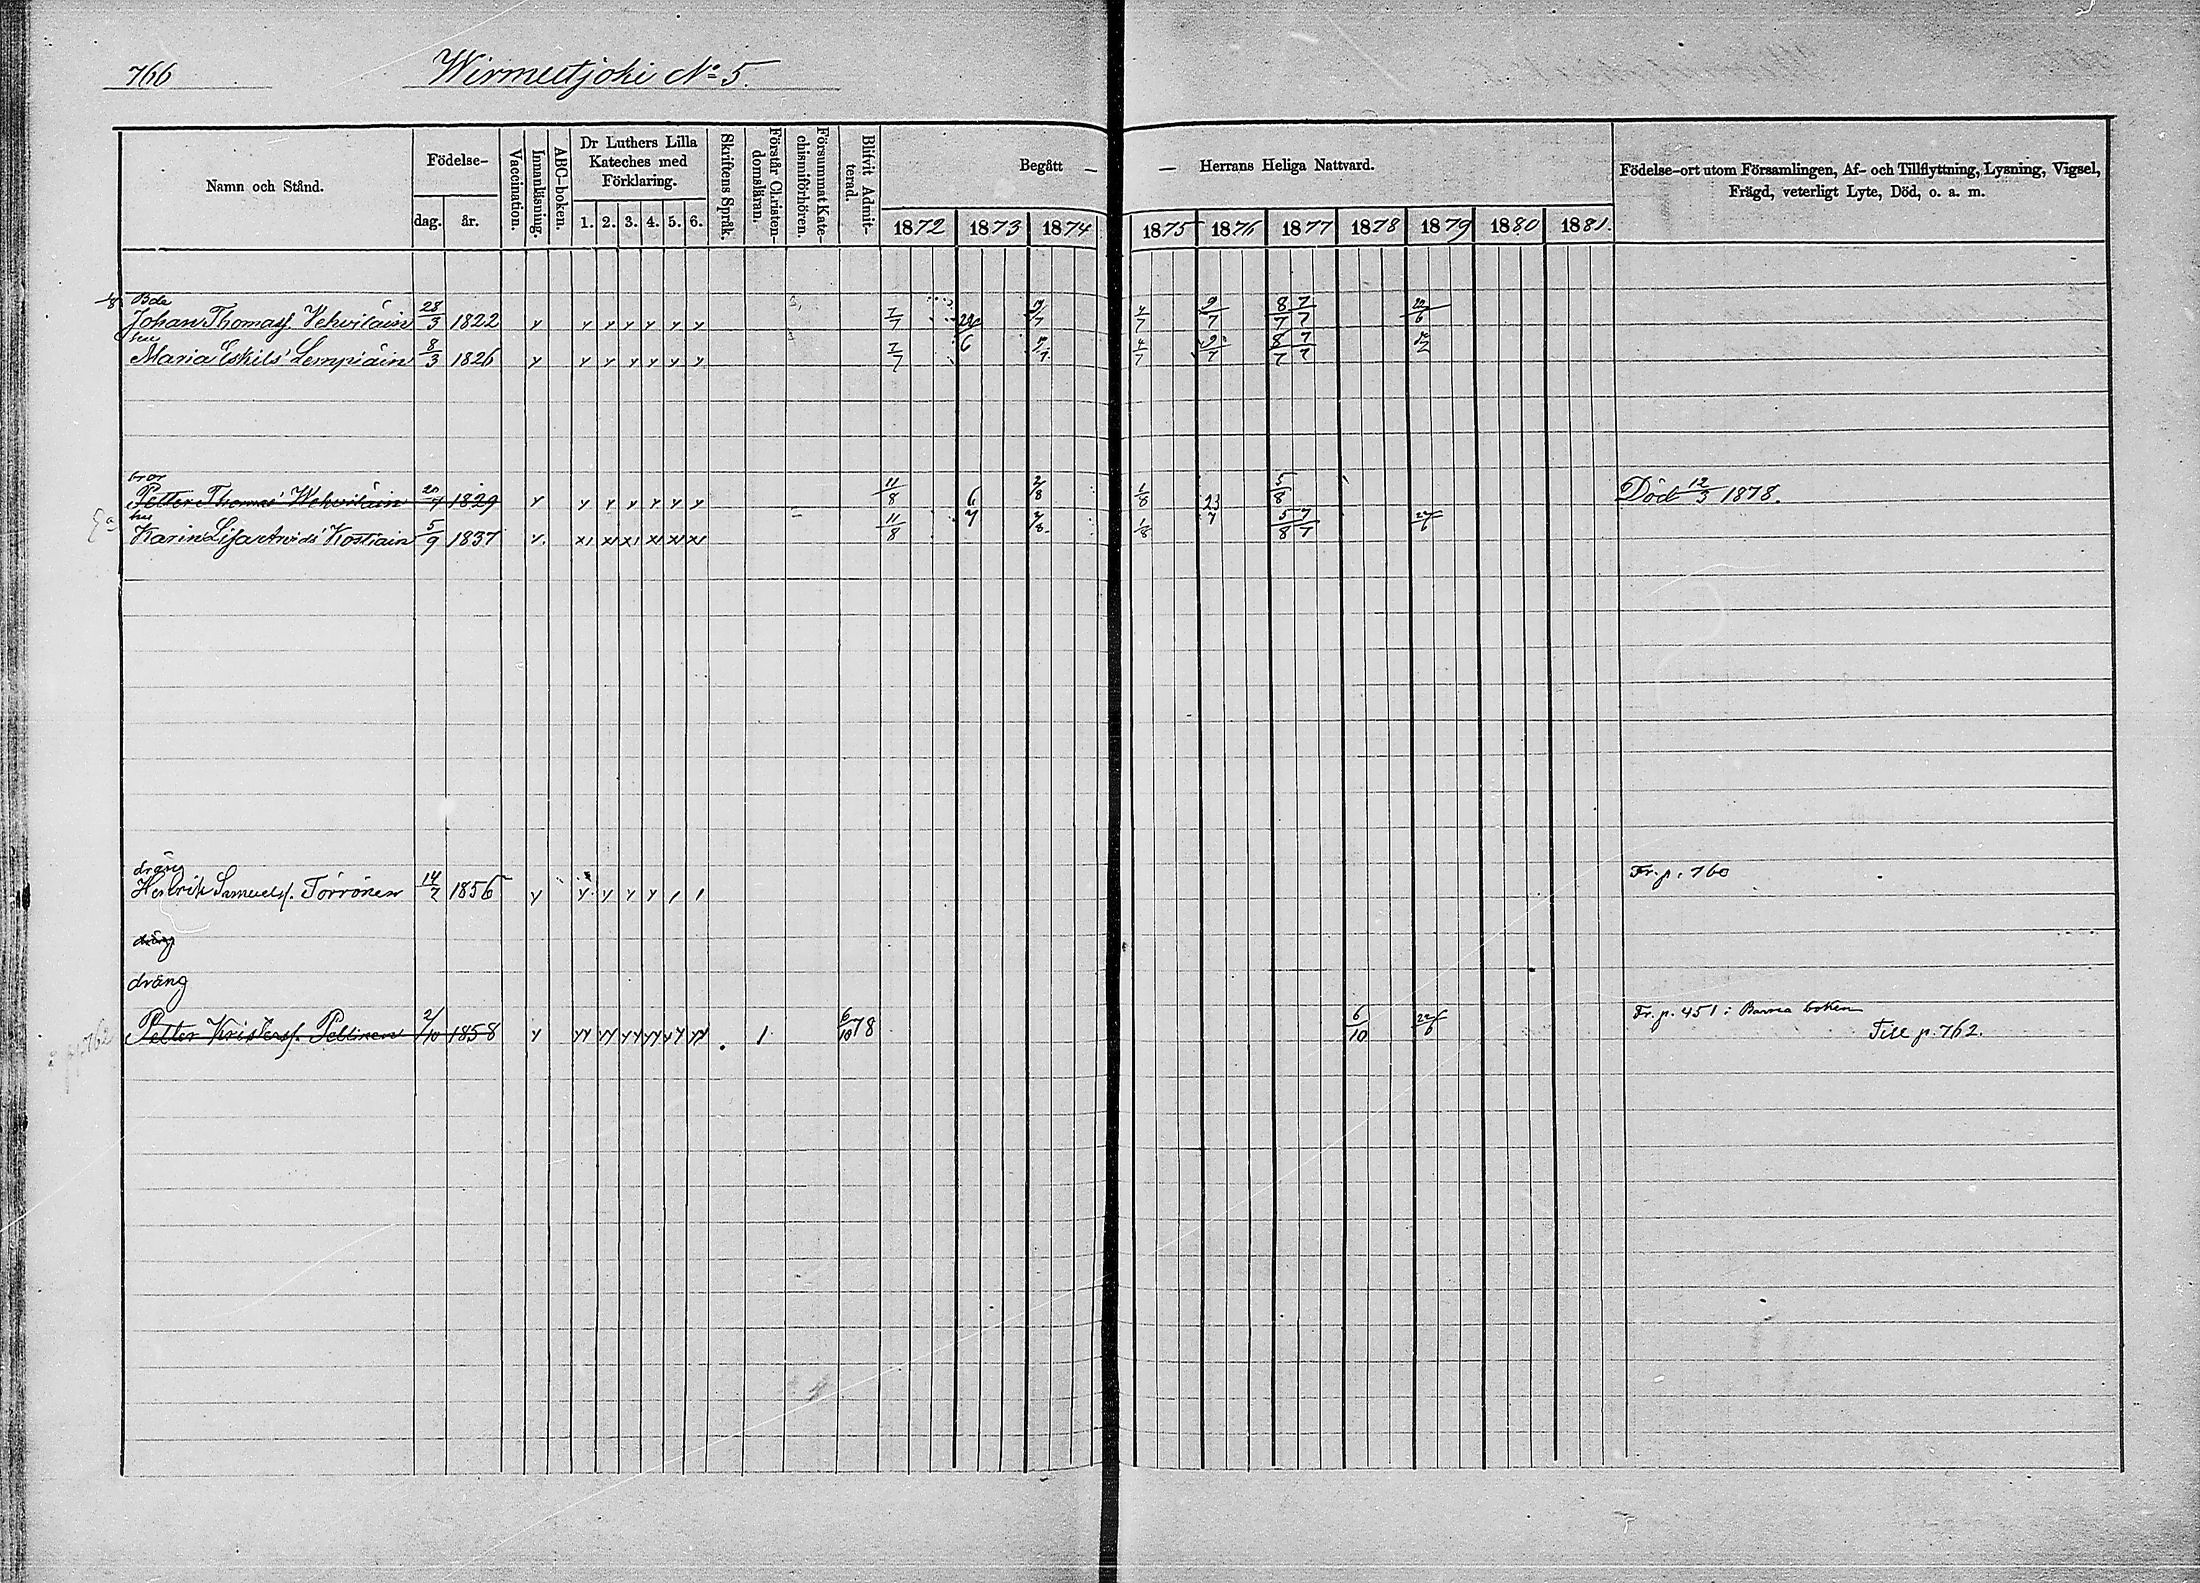 766
Wirmutjoki No 5.
Namn och Stånd.
Födelse-
dag. år.
Vaccination.
Innanläsning.
ABC-boken.
Dr Luthers Lilla Kateches med Förklaring.
1. 2. 3. 4. 5. 6.
Skriftens Språk.
Förstår Christen-domsläran.
Försummat Kate-chismiförhören.
Blifvit Admit-terad.
Begått — — Herrans Heliga Nattvard.
1872 1873 1874 1875 1876 1877 1878 1879 1880 1881.
Födelse-ort utom Församlingen, Af- och Tillflyttning, Lysning, Vigsel,
Frägd, veterligt Lyte, Död, o. a. m.
Bde
Johan Thomass. Vehviläin 28/3 1822 7/7 4/7 9/7 8/7 7/7
hu
Maria Eskils' Lempiäin 8/3 1826 7/7 4/7 9/7 8/7 7/7
bror
Petter Thomas' Wehviläin 1829 11/8 1/8 5/8 Död 12/3 1878.
hu
Karin Lisa Arvids' Kostiain 5/9 1837 11/8 1/8 5/8 7/7
dräng
Henrik Samuelss. Törrönen 14/7 1856 Fr. p. 760
dräng
dräng
Petter Kristerss. Pellinen 2/10 1858 1 6/10 78 6/10 22/6 Fr. p. 451 i Barna boken
Till p. 762.